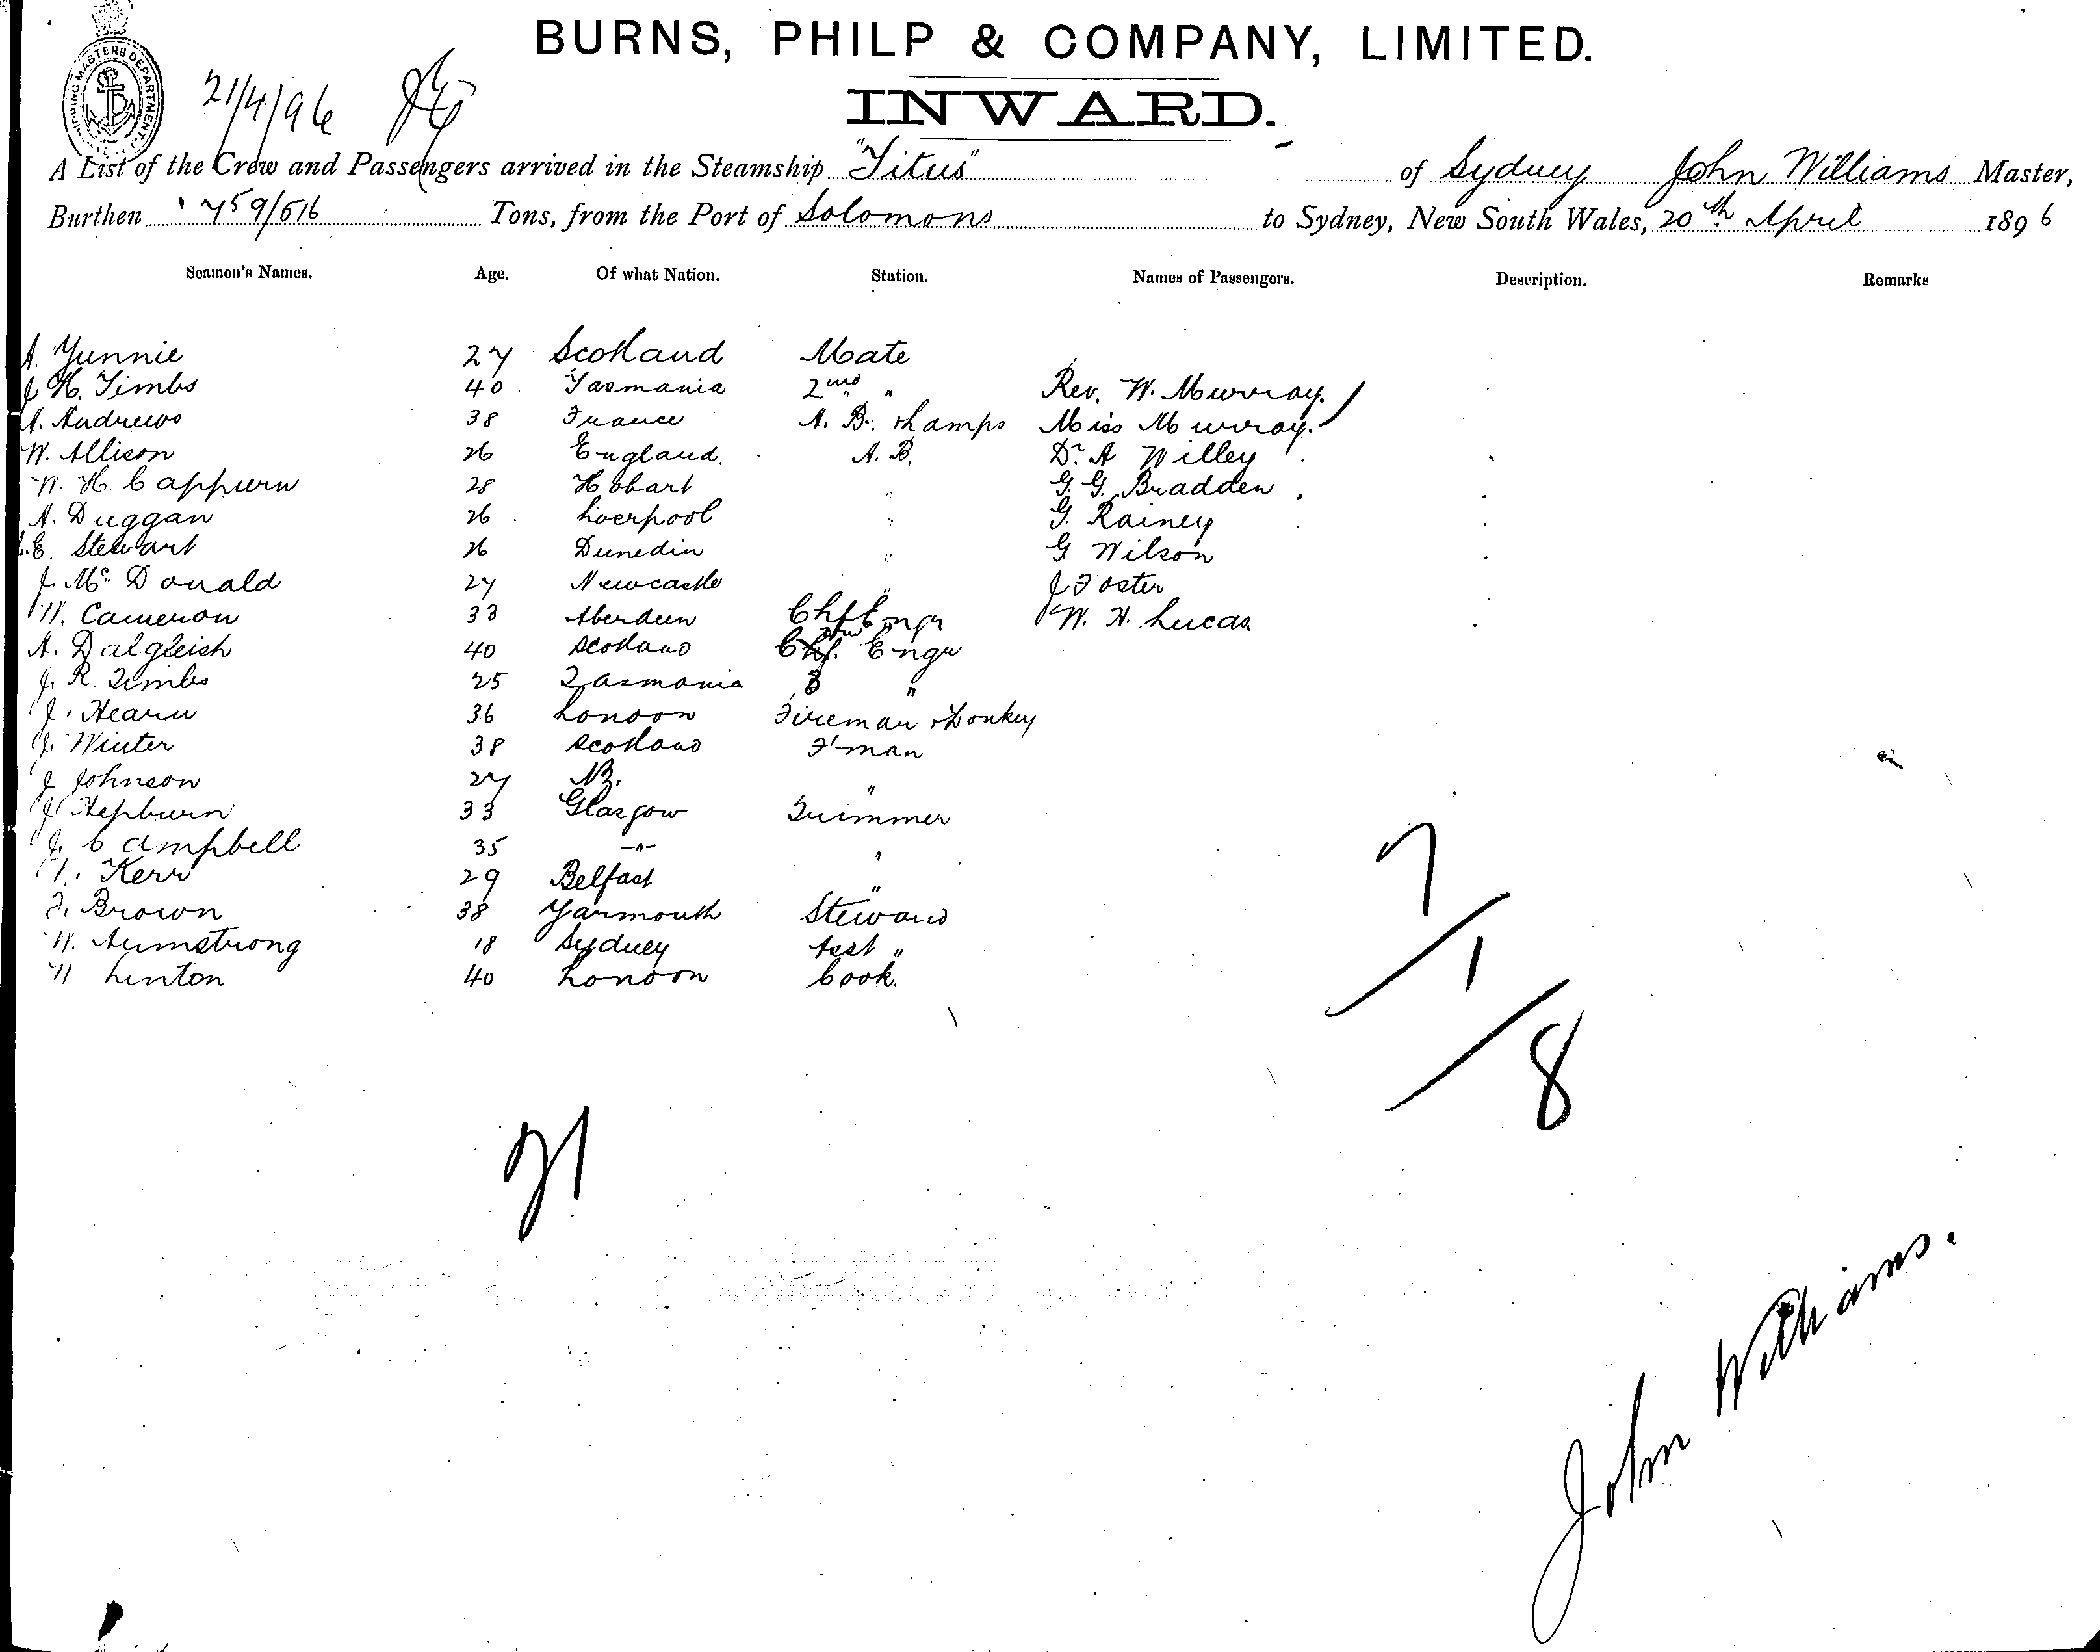 BURNS, PHILP & COMPANY, LIMITED.
INWARD.
SHIPPING MASTERS DEPARTMENT
21/4/96
A List of the Crew and Passengers arrived in the Steamship "Titus" of Sydney John Williams Master,
Burthen 759/516 Tons, from the Port of Solomons to Sydney, New South Wales, 20th April 1896
Seamen's Names. Age. Of what Nation. Station. Names of Passengers. Description. Remarks
A. Yunnie 27 Scotland Mate
J H. Timbs 40 Tasmania 2nd " Rev. W. Murray.
A. Andrews 38 France A. B. & Lamps Miss Murray.
W. Allison 26 England. A. B. Dr. A Willey
W. H. Cappurn 28 Hobart " G. G. Bradden
A. Duggan 26 Liverpool " G. Rainey
E. Stewart 26 Dunedin " G Wilson
J. Mc. Donald 27 Newcastle " J Foster
W. Cameron 33 Aberdeen Chf Engr W. H. Lucas
A. Dalgleish 40 Scotland 2nd Engr
J. R. Timbs 25 Tasmania 3 "
J. Hearn 36 London Fireman & Donkey
J. Winter 38 Scotland F'man
J Johnson 27 NB. "
J Hepburn 33 Glasgow Trimmer
J. Campbell 35 -"- "
Kerr 29 Belfast "
F. Brown 38 Yarmouth Steward
W. Armstrong 18 Sydney Asst "
Linton 40 London Cook.
7/1/8
21
John Williams.